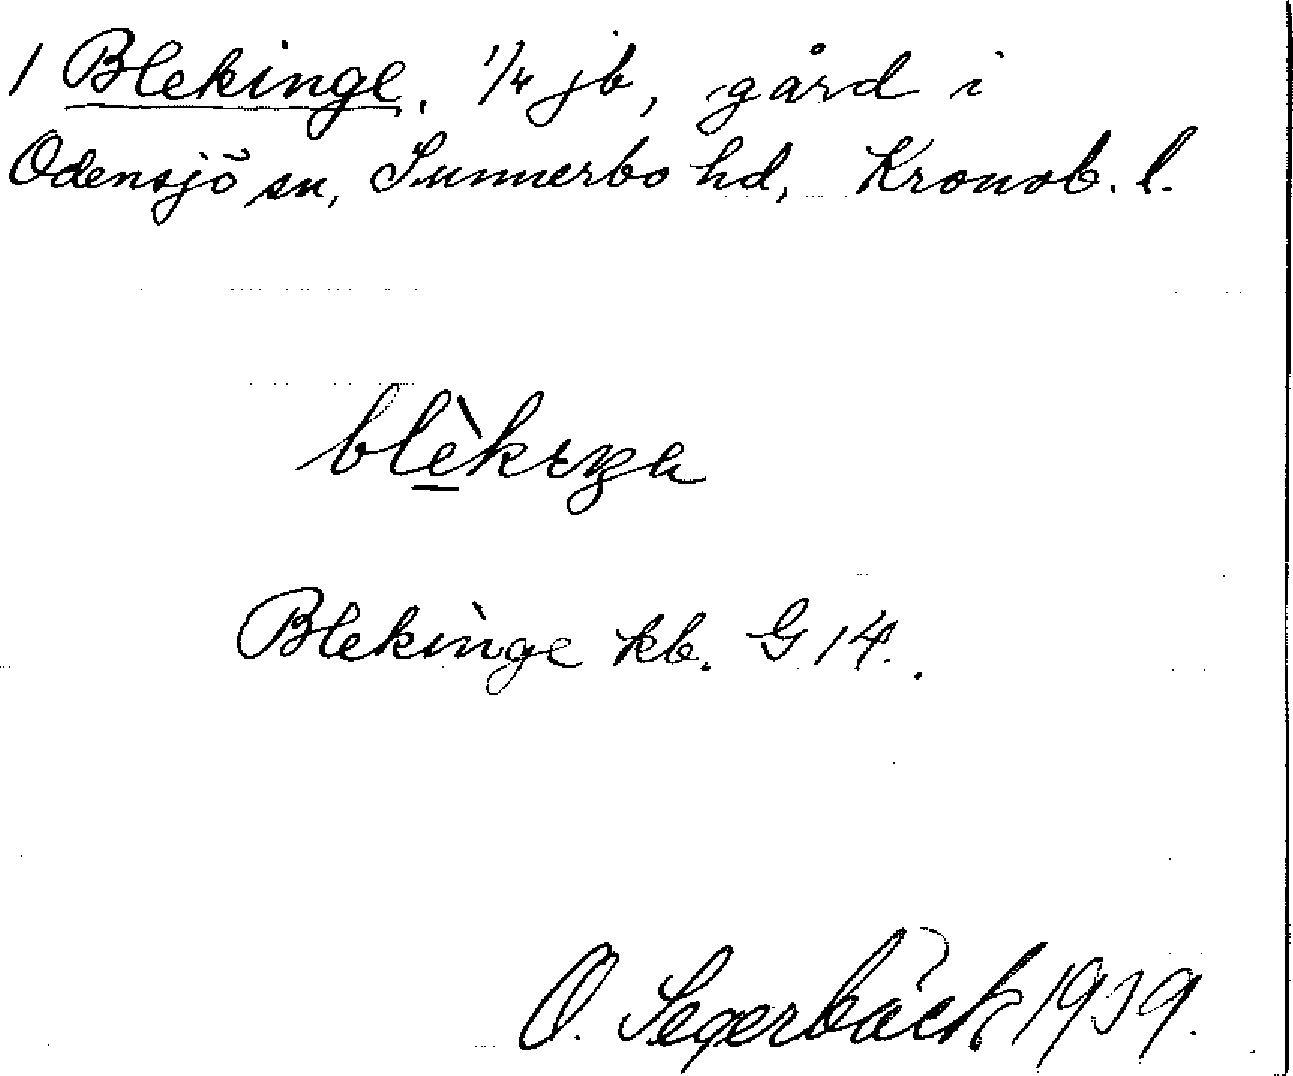 1 Blekinge. 1/4 jb, gård i
Odensjö sn, Sunnerbo hd, Kronob. l.
blèkıŋa
Blekinge kb. G 14.
O. Segerbäck 1939.